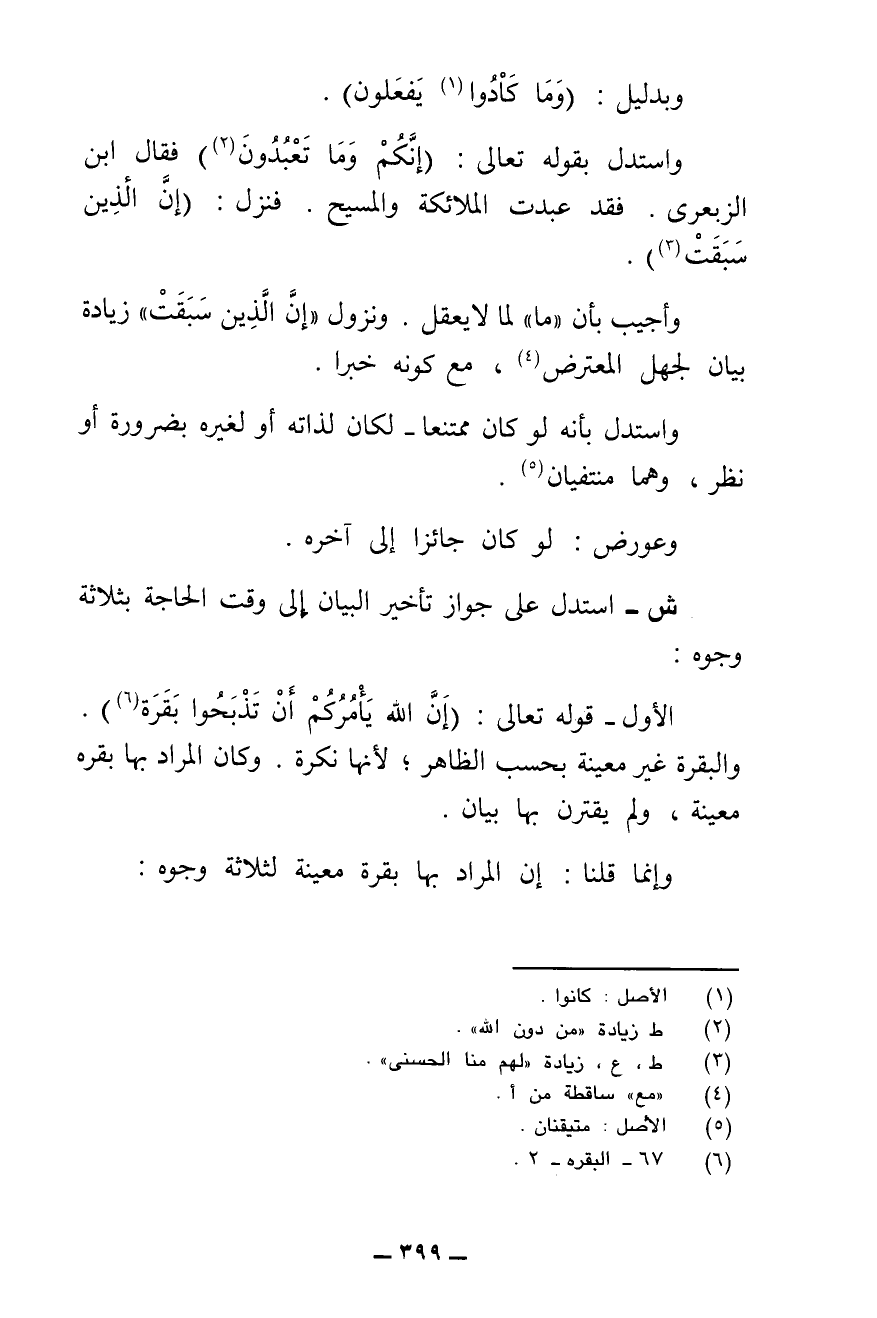 وبدليل : (وَمَا كَاْدُوا(١) يَفعَلون) .
واستدل بقوله تعالى : (إِنَّكُمْ وَمَا تَعْبُدُونَ(٢)) فقال ابن
الزبعرى . فقد عبدت الملائكة والمسيح . فنزل : (إنَّ الَّذِين
سَبَقَتْ(٣)) .
وأجيب بأن «ما» لما لايعقل . ونزول «إنَّ الَّذِين سَبَقَتْ» زيادة
بيان لجهل المعترض(٤) ، مع كونه خبرا .
واستدل بأنه لو كان ممتنعا ـ لكان لذاته أو لغيره بضرورة أو
نظر ، وهما منتفيان(٥) .
وعورض : لو كان جائزا إلى آخره .
ش ـ استدل على جواز تأخير البيان إلى وقت الحاجة بثلاثة
وجوه :
الأول ـ قوله تعالى : (اَنَّ الله يَأْمُرُكُمْ أَنْ تَذْبَحُوا بَقَرَة(٦)) .
والبقرة غير معينة بحسب الظاهر ؛ لأنها نكرة . وكان المراد بها بقره
معينة ، ولم يقترن بها بيان .
وإنما قلنا : إن المراد بها بقرة معينة لثلاثة وجوه :
(١) الأصل : كانوا .
(٢) ط زيادة «من دون الله» .
(٣) ط ، ع ، زيادة «لهم منا الحسنى» .
(٤) «مع» ساقطة من أ .
(٥) الأصل : متيقنان .
(٦) ٦٧ ـ البقره ـ ٢ .
ـ ٣٩٩ ـ